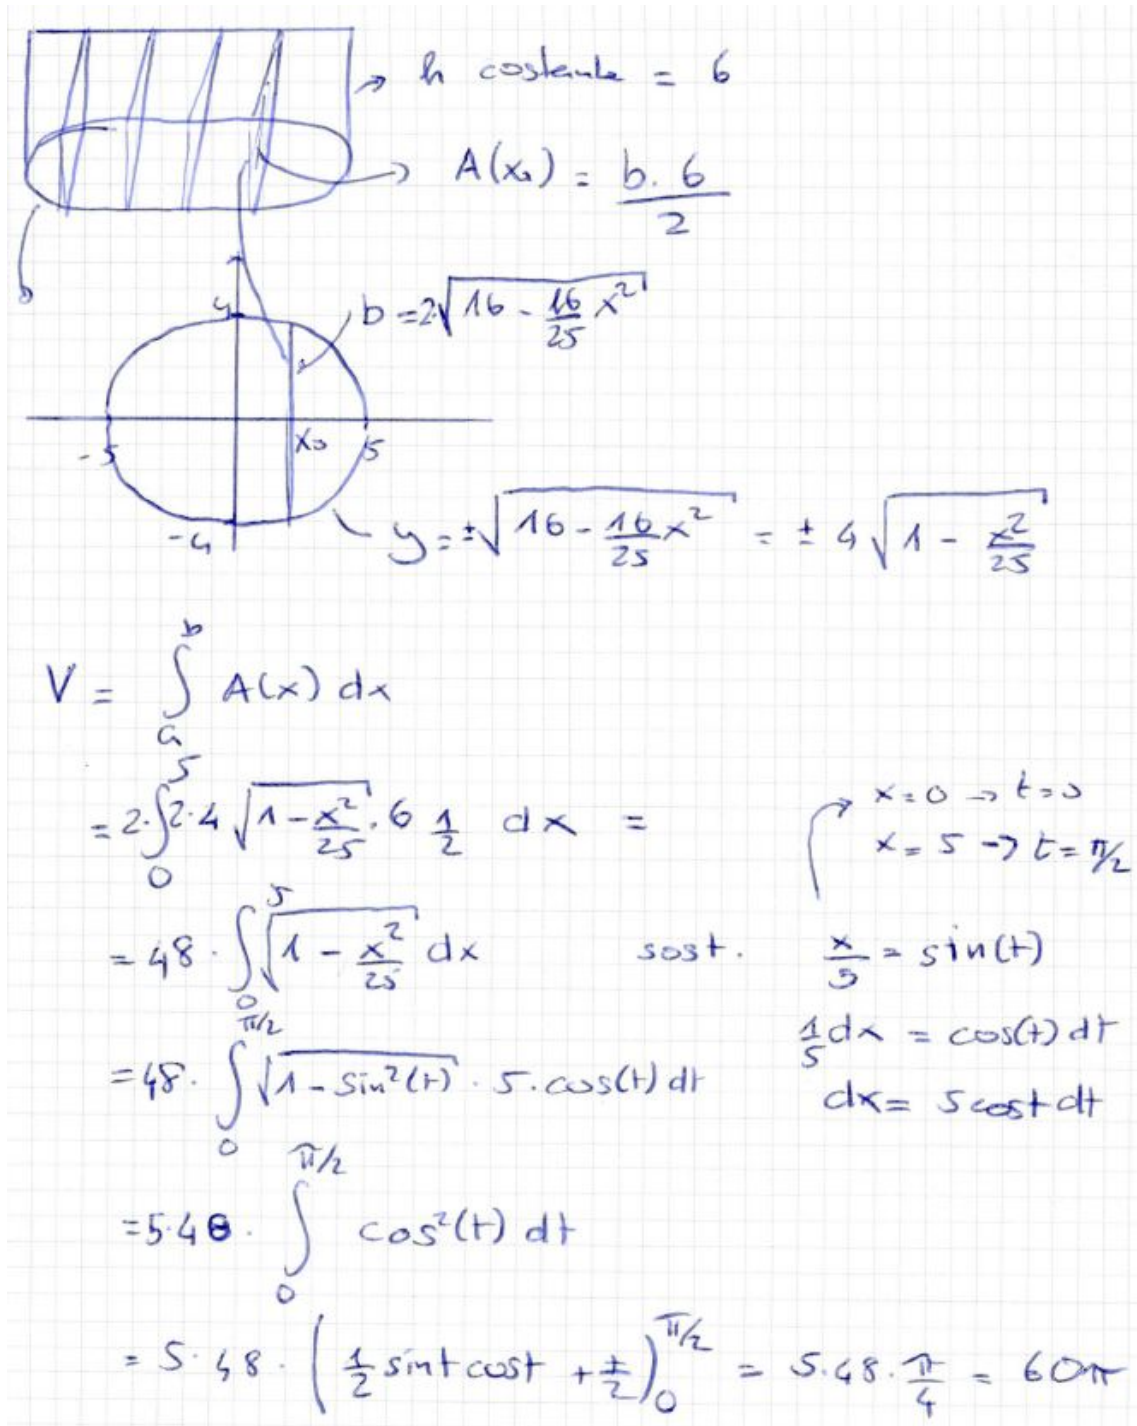 h costante = 6
A(x₀) = b·6/2
b = 2√(16 - 16/25 x²)
4
-5 x₀ 5
-4
y = ±√(16 - 16/25 x²) = ± 4√(1 - x²/25)
V = ∫ₐᵇ A(x) dx
= 2·∫₀⁵ 2·4 √(1 - x²/25) · 6 1/2 dx =
x=0 → t=0
x=5 → t=π/2
= 48 · ∫₀⁵ √(1 - x²/25) dx sost. x/5 = sin(t)
1/5 dx = cos(t) dt
= 48 · ∫₀^(π/2) √(1 - sin²(t)) · 5 · cos(t) dt
dx = 5 cost dt
= 5·48 · ∫₀^(π/2) cos²(t) dt
= 5·48 · (1/2 sint cost + t/2)₀^(π/2) = 5·48·π/4 = 60π